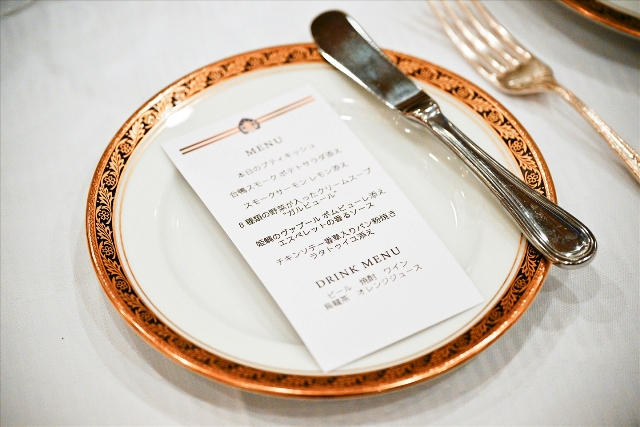 MENU
本日のプティキッシュ
合鴨スモーク ポテトサラダ添え
スモークサーモン レモン添え
8 種類の野菜が入ったクリームスープ
"ガルビュール"
姫鯛のヴァプール ポムピューレ添え
エスペレットの香るソース
チキンソテー香草入りパン粉焼き
ラタトゥイユ添え
DRINK MENU
ビール 焼酎 ワイン
烏龍茶 オレンジジュース